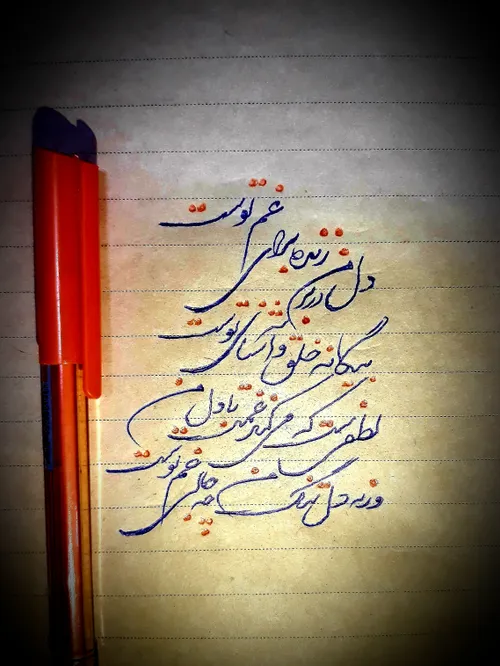 دل در بر من زنده برای غم توست
بیگانه خلق و آشنای توست
لطفی ست که می کند غمت با دل من
ورنه دل تنگ من چه جای غم توست